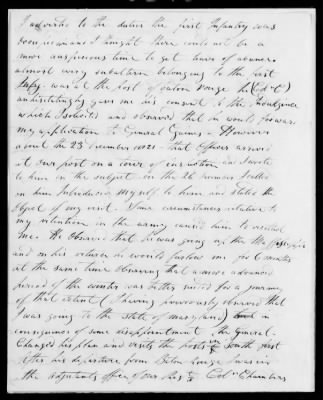 I advertised to the duties the first Infantry was
been remained I thought there could not be a
more auspicious time to get leave of absence
almost every subaltern belonging to the first
Infy. was at the post of Baton Rouge he (Col C)
unhesitatingly gave me his consent to the Indulgence
which I solicited and observed that he would forward
my application to General Gaines – However
about the 23 December 1821 – that officer arrived
at our post on a tour of inspection and I wrote
to him on the subject on the 26 I called
on him Introduced myself to him and stated the
Object of my visit – Some circumstances relative to
my retention in the army caused him to recollect
me. He Observed that he was going up the Mississippi
and on his return he would furlow me for 6 months
at the same time observing that a more advanced
period of the winter was better suited for a journey
of that extent (I having previously observed that
I was going to the State of Maryland) but in
consequence of some disappointment the General
Changed his plan and visits the posts in South first
After his departure from Baton Rouge I was in
the adjutants office of our Reg Col. Chambers